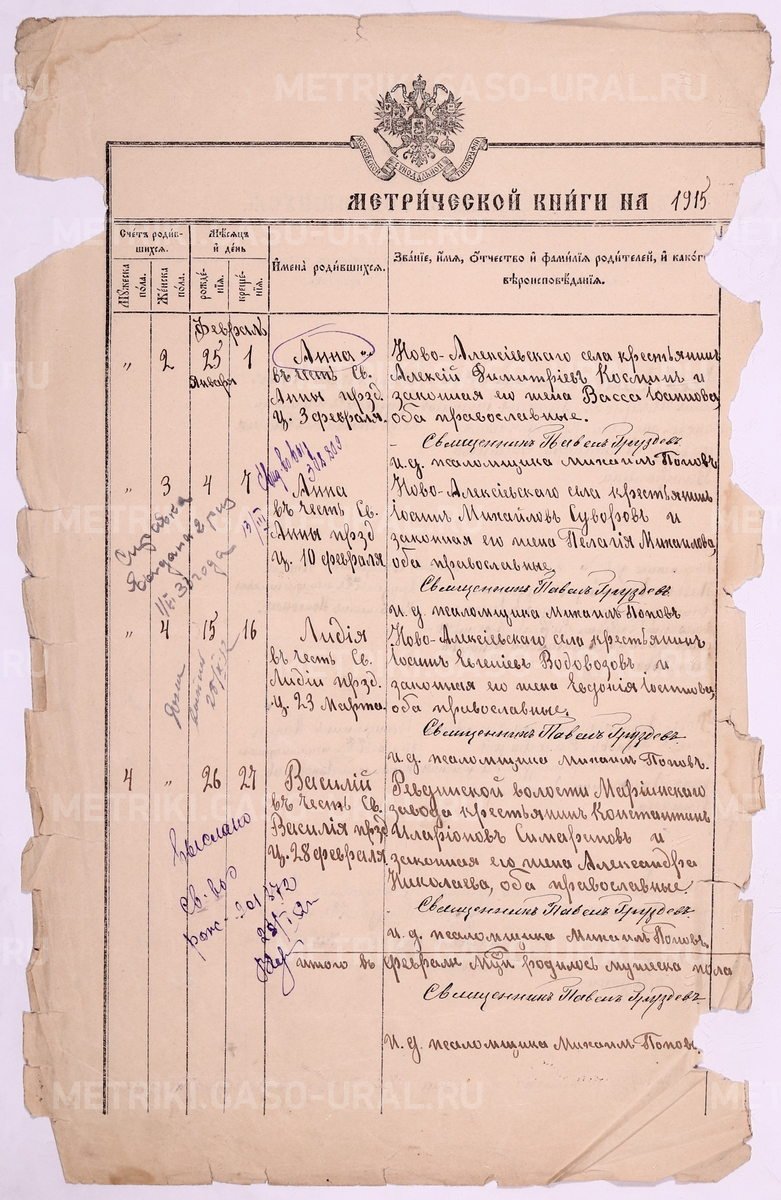 МЕТРИ́ЧЕСКОЙ КНИ́ГИ НА 1915
Сче́тъ роди́в-
шихся.
Му́жеска
по́ла.
Же́нска
по́ла.
Мѣ́сяцъ
и́ де́нь
рожде́-
нїя.
креще́-
нїя.
И҆мена̀ роди́вшихся.
Зва́нїе, и҆́мя, ѻ҆́тчество и҆ фами́лїѧ роди́телей, и҆ како́г
вѣроисповѣ́данїя.
Февраль
" 2 25 1
Января
Анна
въ честь Св.
Анны прзд.
Ц. 3 февраля.
Ново-Алексіевскаго села крестьянин
Алексій Димитріев Космин и
законная его жена Васса Іоаннова,
оба православные.
Священникъ Павелъ Груздевъ
И. д. псаломщика Михаилъ Поповъ
" 3 4 7
Анна
въ честь Св.
Анны прзд
Ц. 10 февраля
Ново-Алексіевскаго села крестьянин
Іоанн Михайловъ Суворовъ и
законная его жена Пелагія Михайлова,
оба православные.
Священникъ Павелъ Груздевъ
И. д. псаломщика Михаилъ Поповъ
Справка
выдана 2 раз
года
" 4 15 16
Лидія
въ честь Св.
Лидіи прзд.
Ц. 23 Марта
Ново-Алексіевскаго села крестьянин
Іоанн Евгеніев Водовозовъ и
законная его жена Евдокія Іоаннова,
оба православные.
Священникъ Павелъ Груздевъ
И. д. псаломщика Михаилъ Поповъ.
4 " 26 27
Василій
въ честь Св.
Василія прзд
Ц. 28 февраля
Ревдинской волости Маріинскаго
завода крестьянин Константин
Иларіоновъ Симарановъ и
законная его жена Александра
Николаева, оба православные.
Священникъ Павелъ Груздевъ
И. д. псаломщика Михаилъ Поповъ.
Выслано
Св-во
рож-
итого въ феврали мцѣ родилось мужеска пола
Священникъ Павелъ Груздевъ
И. д. псаломщика Михаилъ Поповъ
METRIKI.GASO-URAL.RU